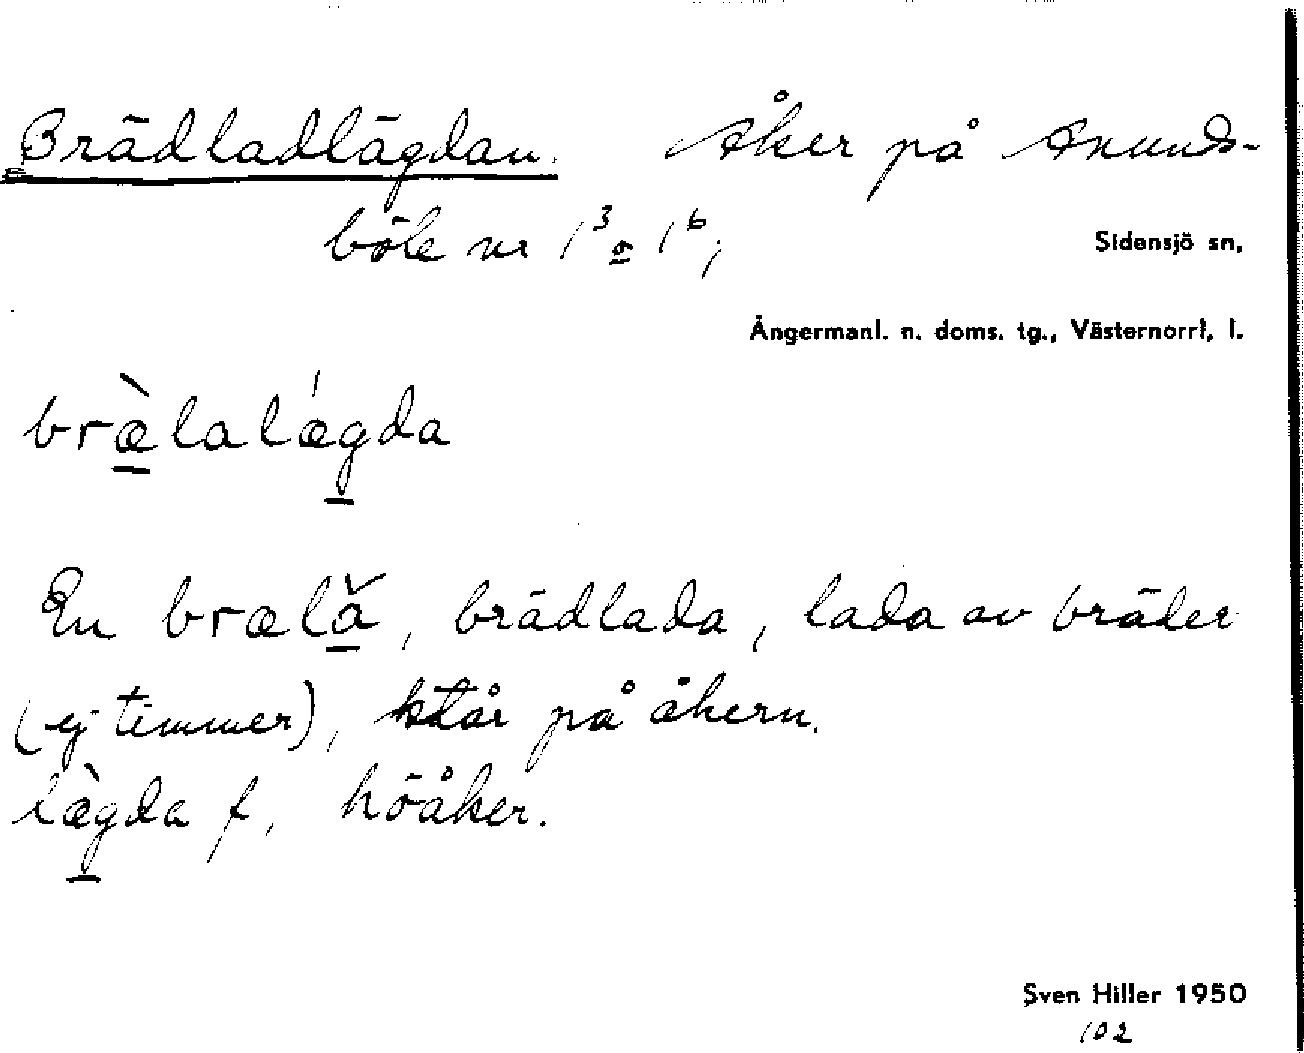 Brädladlägdan. Åker på Anunds-
böle nr 1³ o 1⁶,
Sidensjö sn,
Ångermanl. n. doms. tg., Västernorrl. l.
bræ̀lalǽgda
En brælǎ, brädlada, lada av bräder
(ej timmer), står på åkern.
læ̀gda f, höåker.
Sven Hiller 1950
102